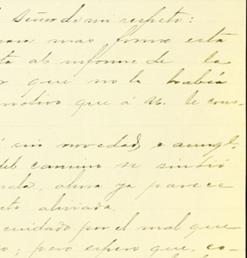 Señor de mi respeto:
para mas forma esta
al informe de la
que no la había
motivo que á U. le cons-
sin novedad, e aunq.
del camino se sintió
ahora ya parece
aliviada.
cuidado por el mal que
; pero espero que, co-